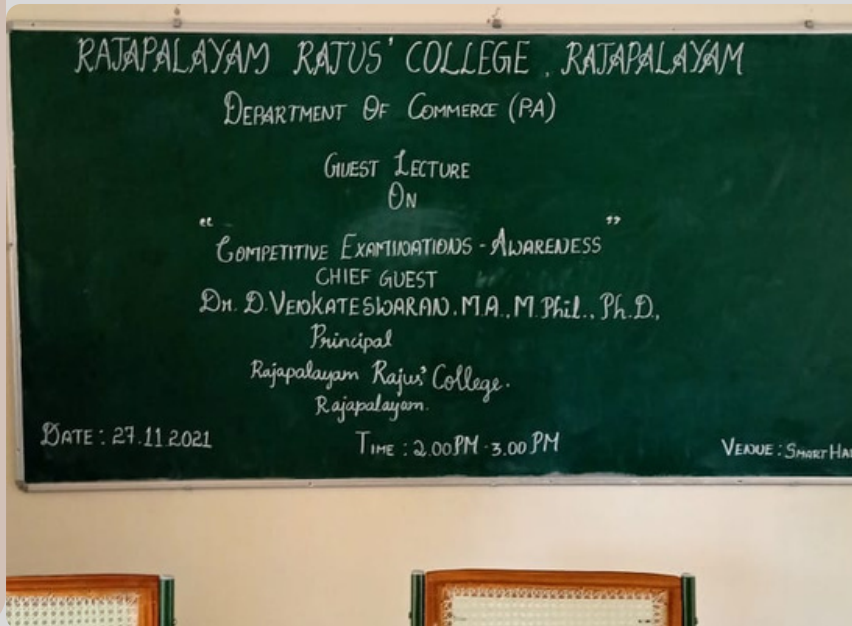 RAJAPALAYAM RAJUS' COLLEGE, RAJAPALAYAM
DEPARTMENT OF COMMERCE (P.A)
GUEST LECTURE
ON
"COMPETITIVE EXAMINATIONS - AWARENESS"
CHIEF GUEST
Dr. D. VENKATESWARAN. M.A., M.Phil., Ph.D.,
Principal
Rajapalayam Rajus' College.
Rajapalayam.
DATE : 27.11.2021 TIME : 2.00 PM - 3.00 PM VENUE : SMART